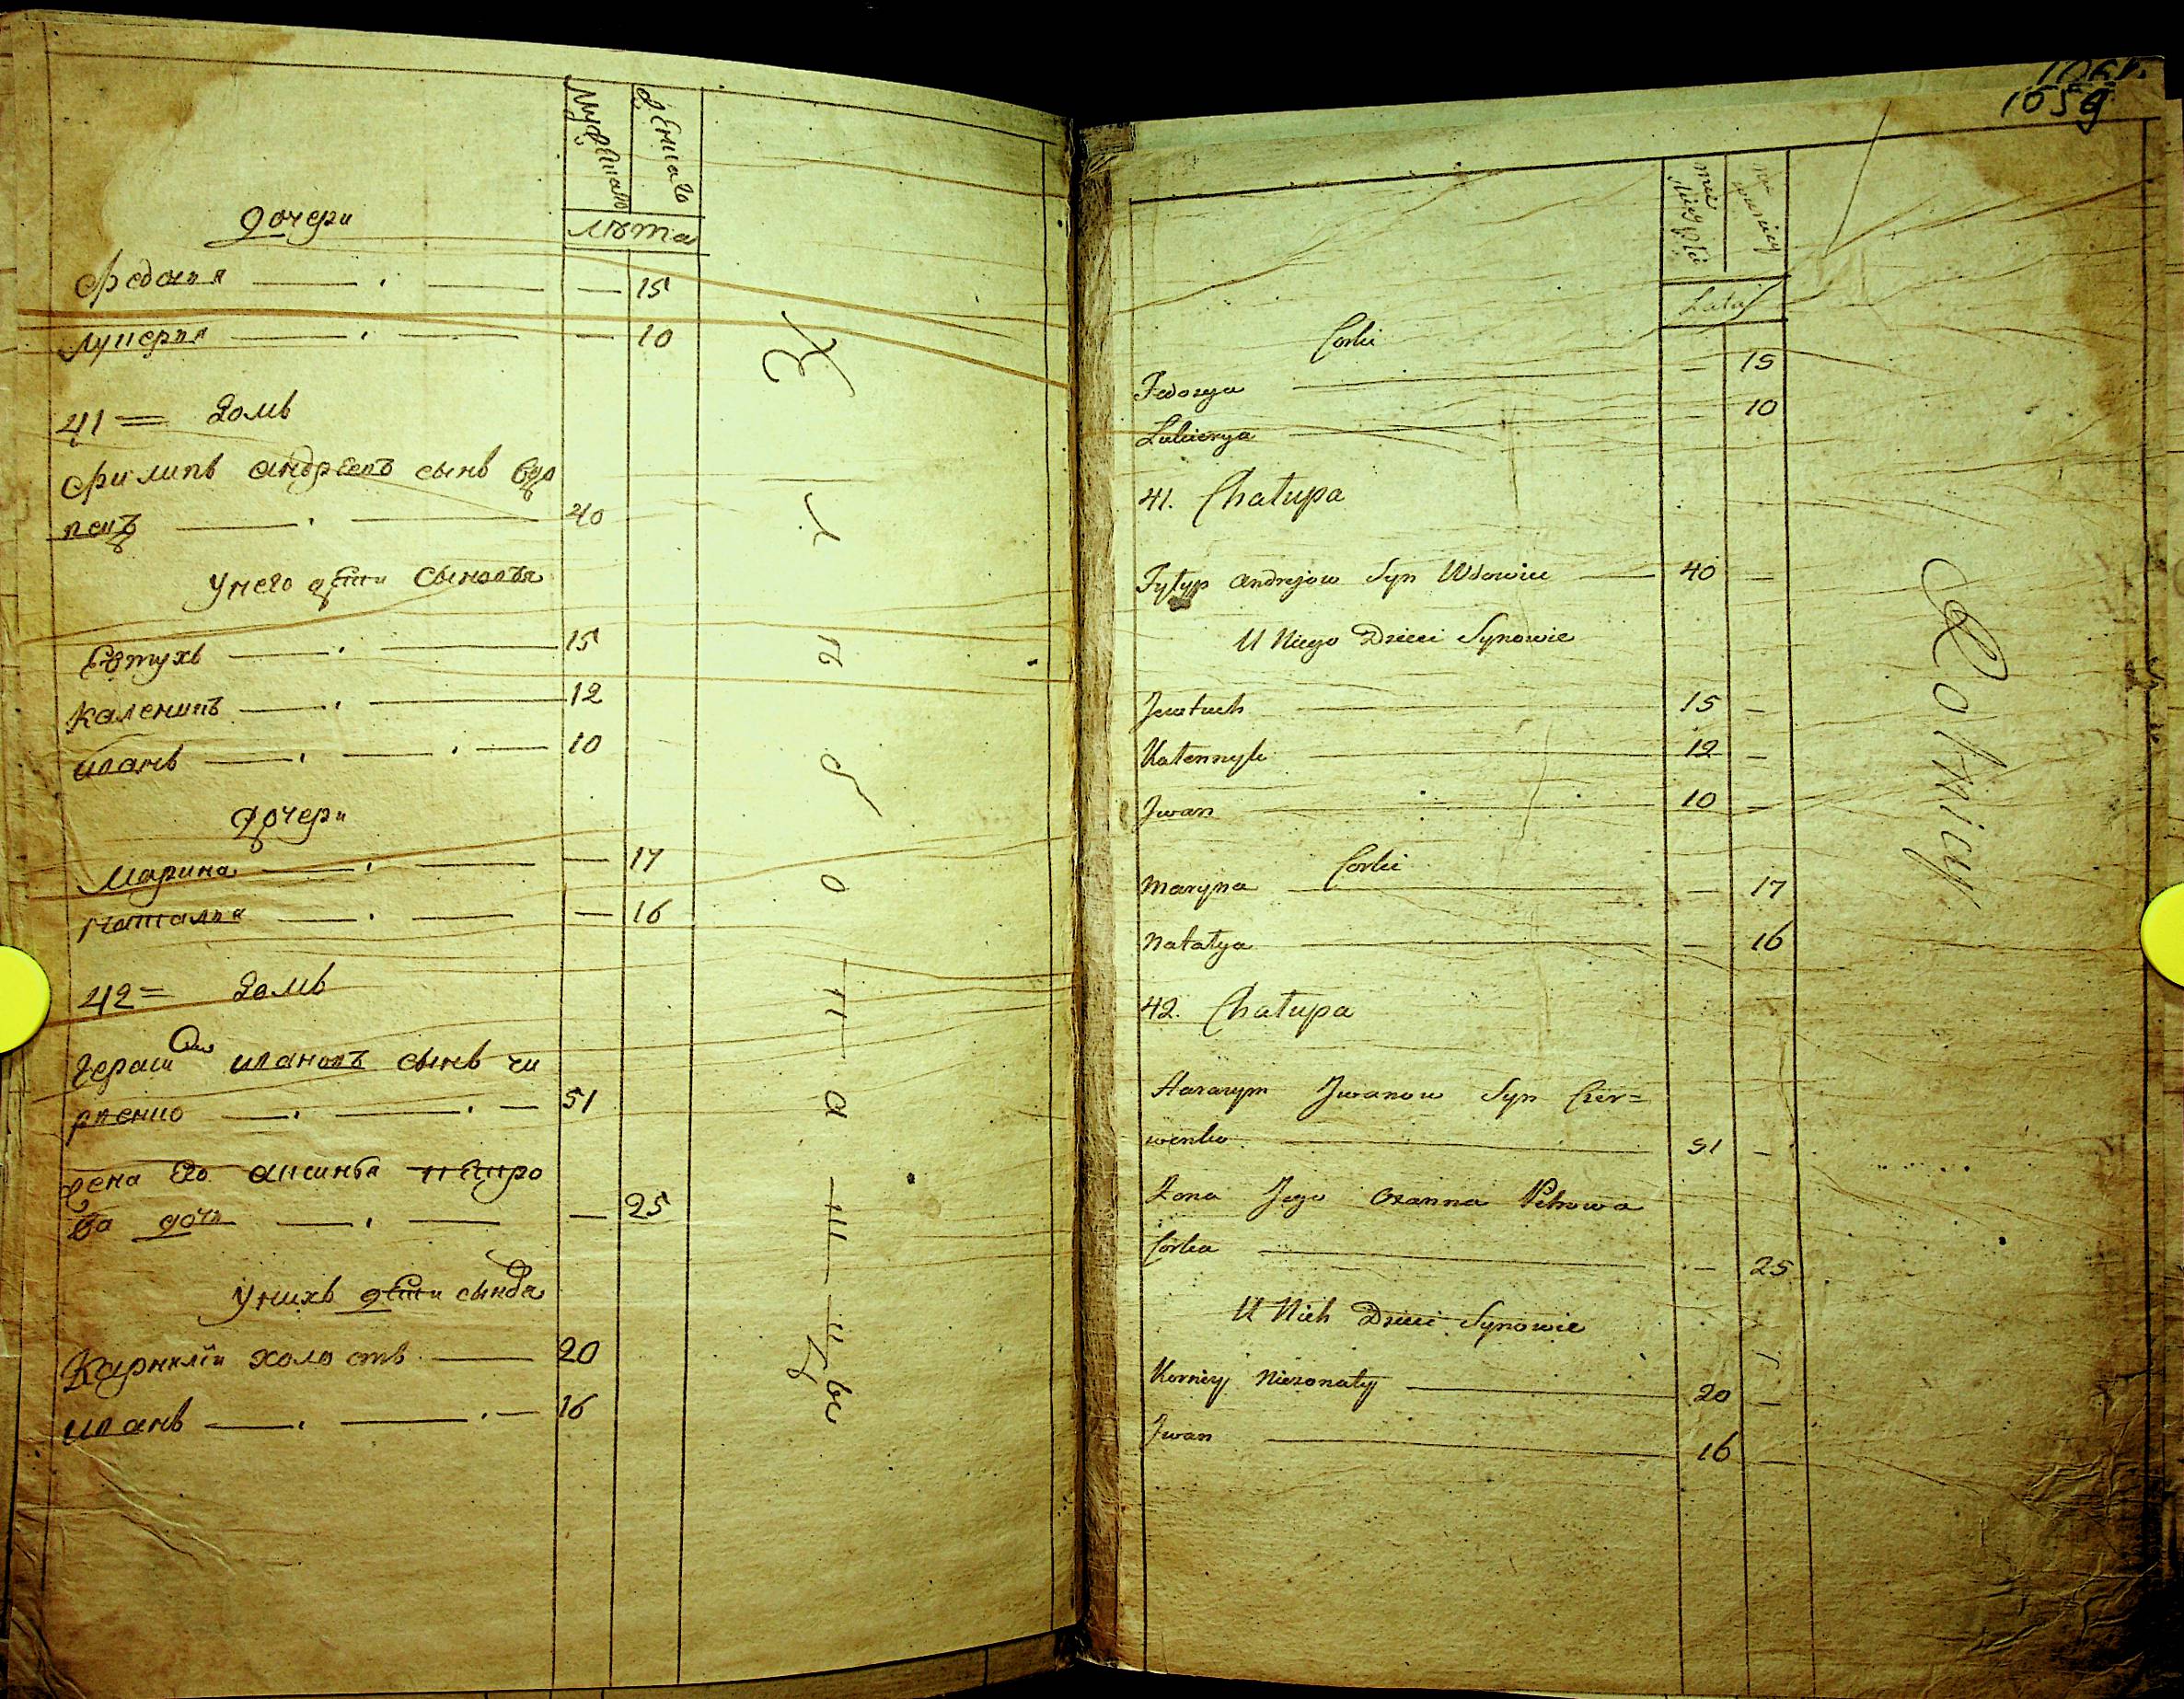 Мужеска
Женска
Лѣта
дочери
Федосия — 15
Лукерия — 10
41 = Домъ
Филипъ андреевъ сынъ вдо
вецъ — 40
У него дѣти Сыновья
Евтухъ — 15
Каленикъ — 12
иванъ — 10
дочери
Марина — 17
Наталия — 16
42 = Домъ
Герасим ивановъ сынъ чи
рвенко — 51
жена Его оксинья петро
ва дочь — 25
У нихъ дѣти сыновя
Карнилiй холостъ — 20
иванъ — 16
Хлѣбопашцы
1059
Lata
Corki
Fedosya — 15
Lukierya — 10
41. Chałupa
Fyłyp Andrejow Syn Wdowiec — 40 —
U Niego Dzieci Synowie
Jewtuch — 15 —
Kałennyk — 12 —
Jwan — 10 —
Corki
Maryna — 17
Natałya — 16
42. Chałupa
Harasym Jwanow Syn Czer=
wenko — 51 —
Zona Jego Oxanna Petrowa
Corka — 25
U Nich Dzieci Synowie
Korniey Niezonaty — 20 —
Jwan — 16 —
Rolnicy